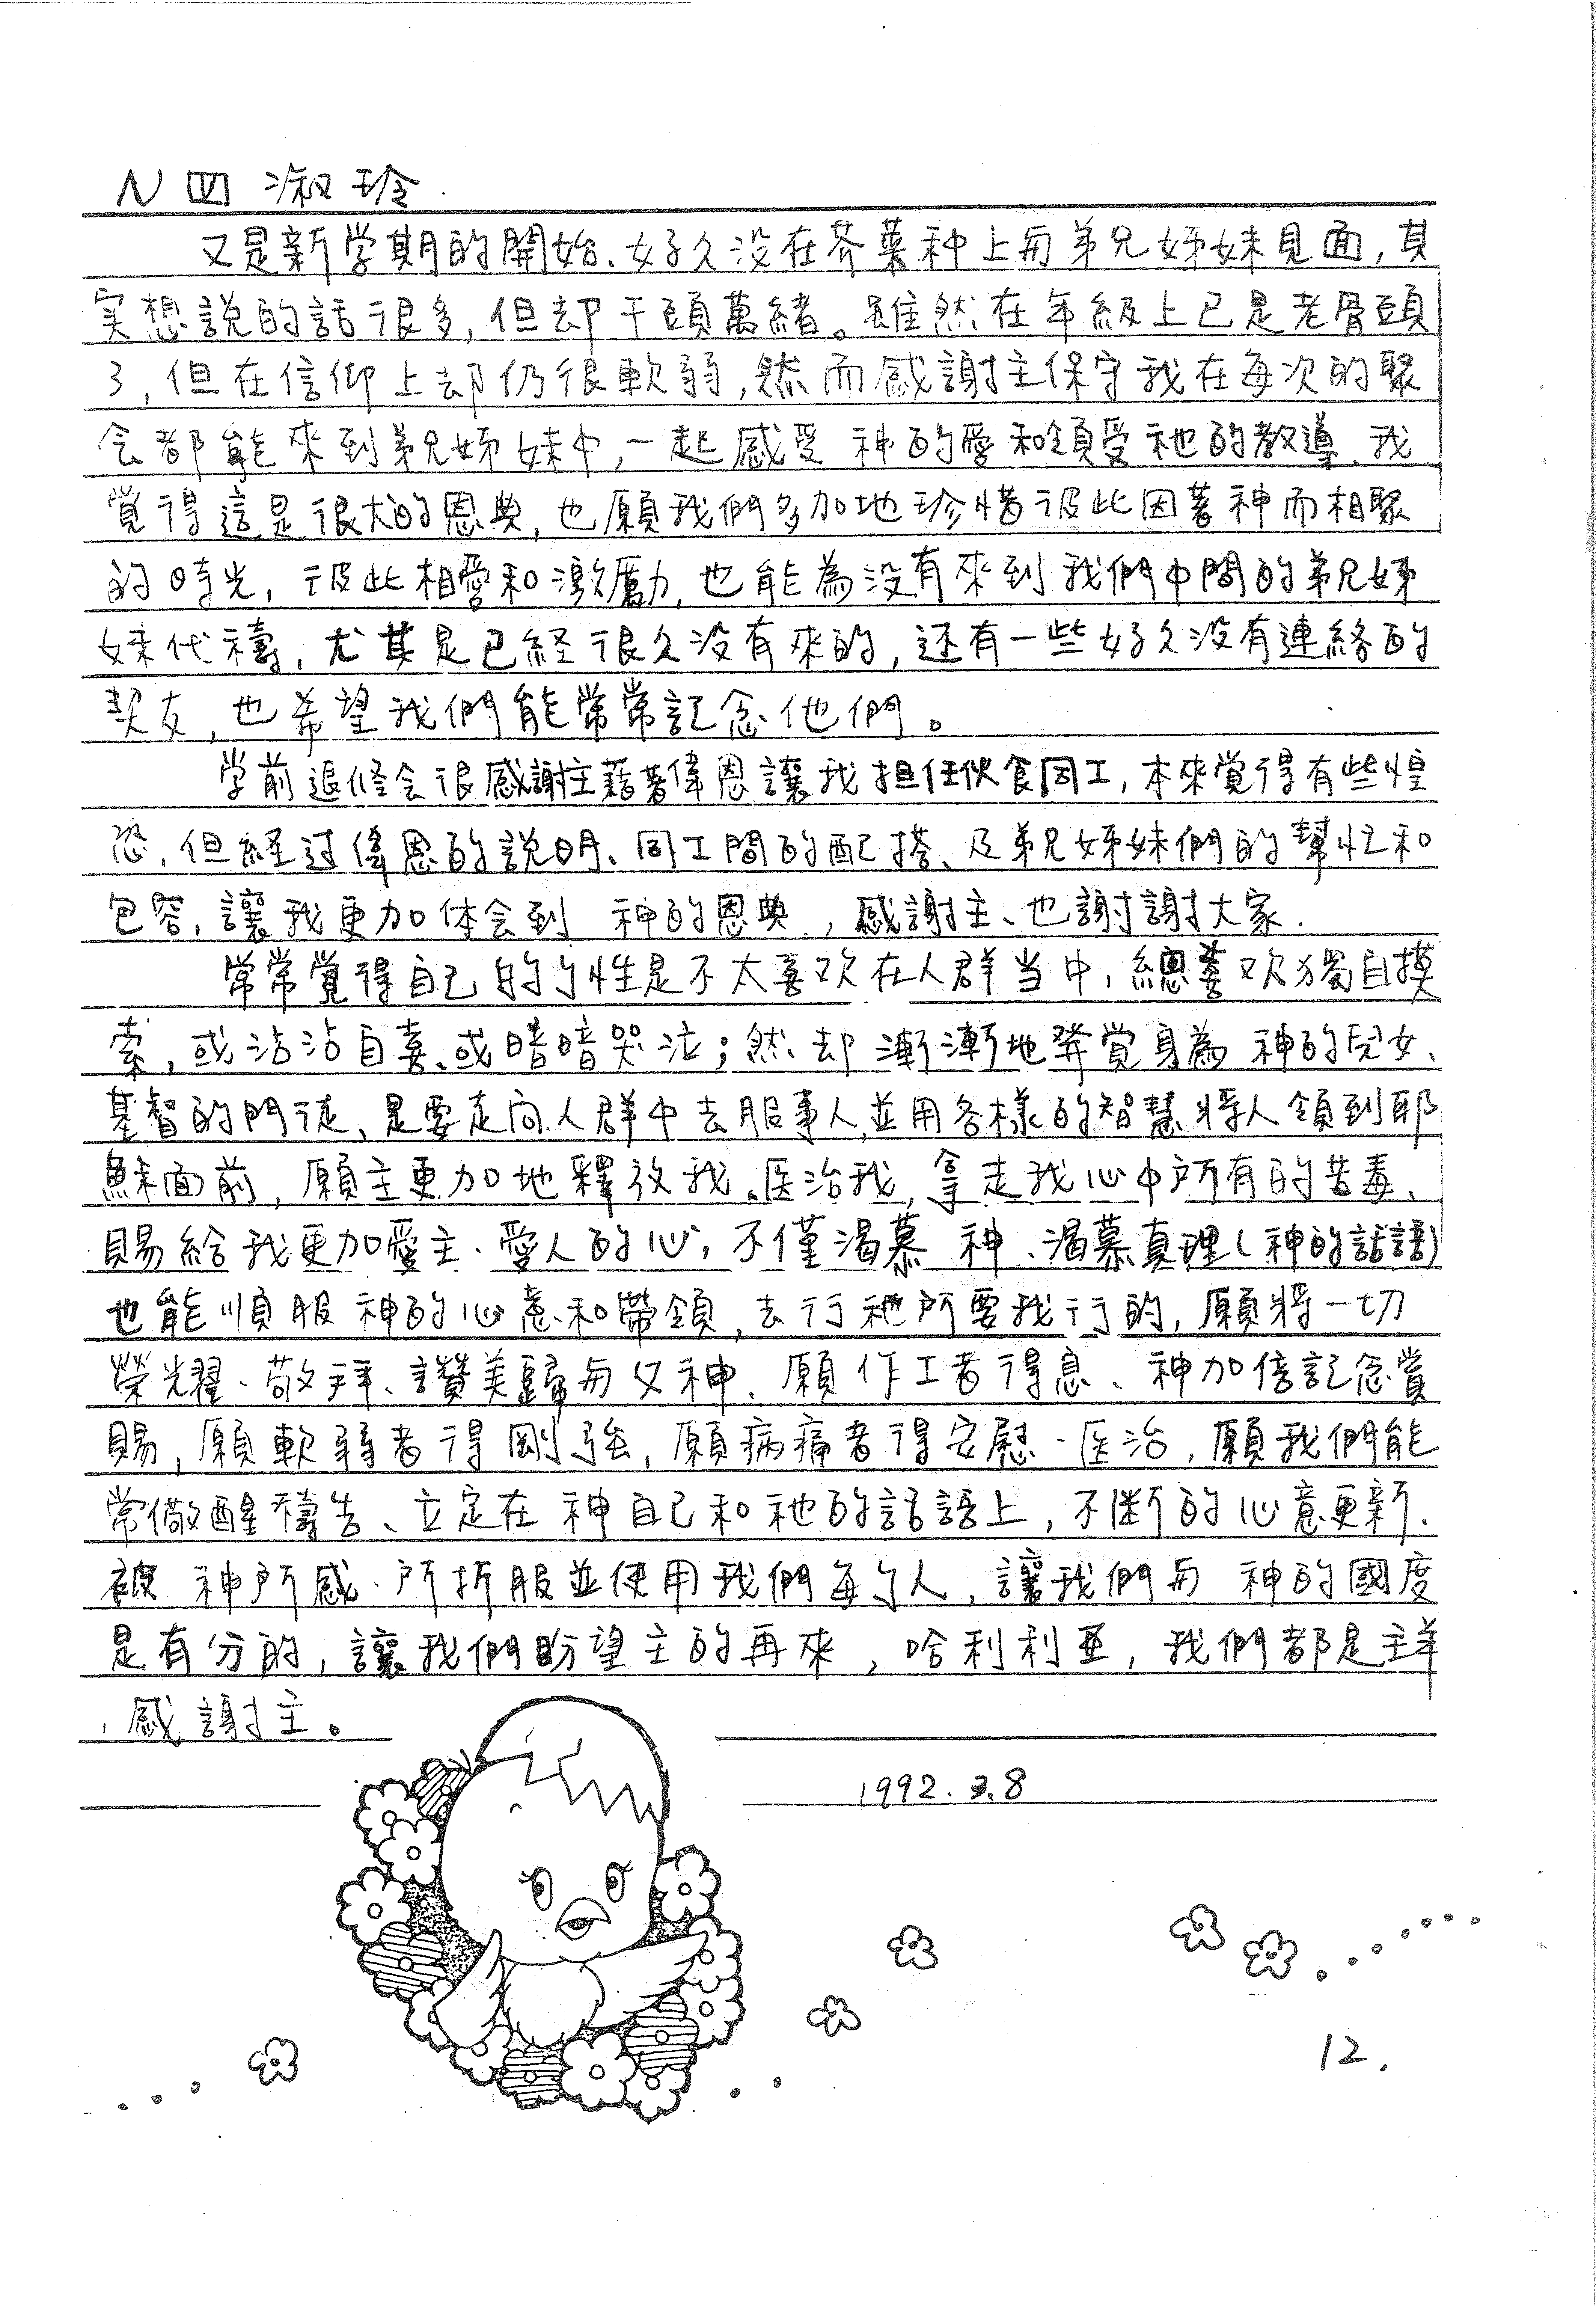 N四 淑玲
又是新学期的開始、好久没在芥菜种上与弟兄姊妹見面,其
实想說的話很多,但却千頭萬緒。雖然在年級上已是老骨頭
了,但在信仰上却仍很軟弱,然而感謝主保守我在每次的聚
会都能來到弟兄姊妹中,一起感受 神的愛和領受祂的教導、我
覺得這是很大的恩典,也願我們多加地珍惜彼此因著神而相聚
的時光,彼此相愛和激勵,也能為没有來到我們中間的弟兄姊
妹代禱,尤其是已経很久没有來的,还有一些好久没有連絡的
契友,也希望我們能常常記念他們。
学前退修会很感謝主藉著偉恩讓我担任伙食同工,本來覺得有些惶
恐,但経过偉恩的說明、同工間的配搭、及弟兄姊妹們的幫忙和
包容,讓我更加体会到 神的恩典,感謝主、也謝謝大家.
常常覺得自己的个性是不太喜欢在人群当中,總喜欢獨自摸
索,或沾沾自喜、或暗暗哭泣;然却漸漸地発覚身為 神的兒女、
基督的門徒、是要走向人群中去服事人,並用各樣的智慧將人領到耶
穌面前,願主更加地釋放我、医治我,拿走我心中所有的苦毒、
賜給我更加愛主、愛人的心,不僅渴慕 神、渴慕真理(神的話語)
也能順服 神的心意和帶領,去行祂所要我行的,願將一切
榮光耀、敬拜、讚美歸与父神、願作工者得息、神加倍記念賞
賜,願軟弱者得剛強,願病痛者得安慰、医治,願我們能
常儆醒禱告、立定在 神自己和祂的話語上,不断的心意更新、
被 神所感、所折服並使用我們每个人,讓我們与 神的國度
是有分的,讓我們盼望主的再來,哈利利亚,我們都是主羊
,感謝主。
1992.3.8
12.